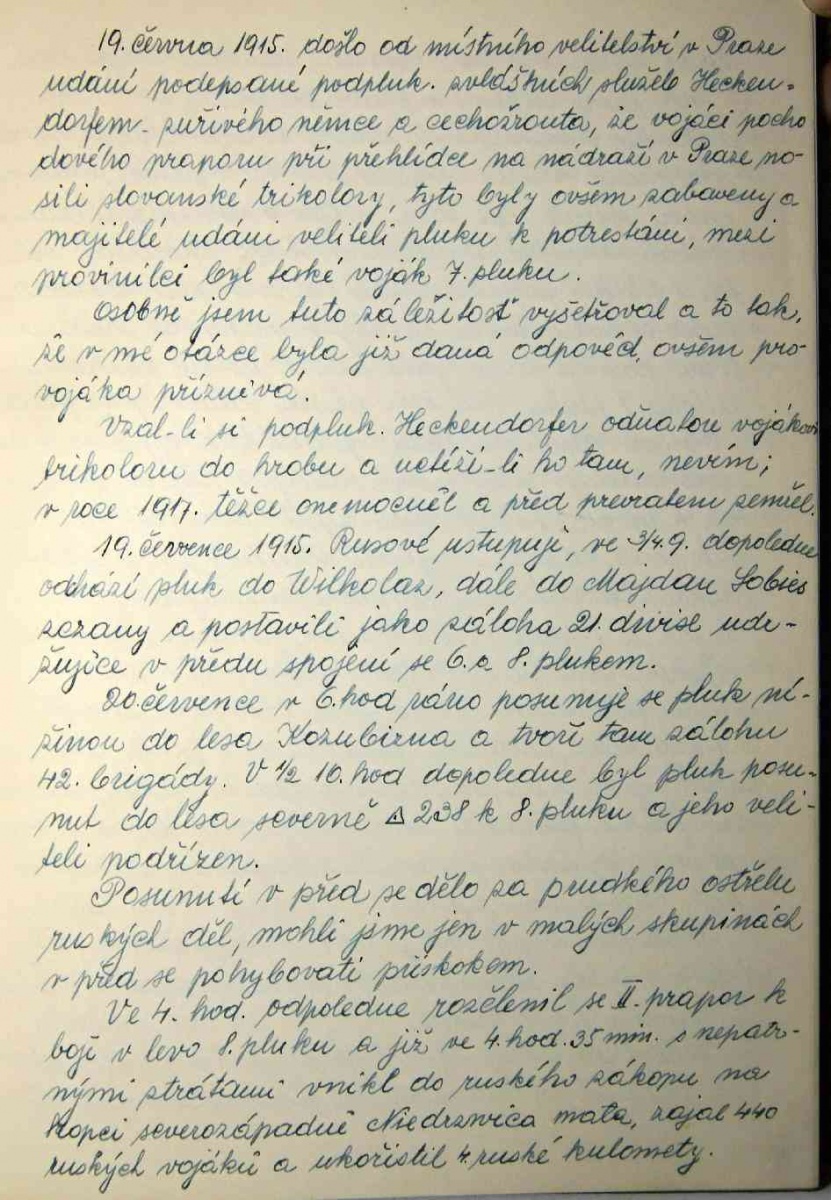 19. června 1915. došlo od místního velitelství v Praze
udání podepsané podpluk. zvláštních služeb Hecken-
dorfem - zuřivého němce a čechožrouta, že vojáci pocho
dového praporu při přehlídce na nádraží v Praze no-
sili slovanské trikolory, tyto byly ovšem zabaveny a
majitelé udáni veliteli pluku k potrestání, mezi
provinilci byl také voják 7. pluku.
Osobně jsem tuto záležitost vyšetřoval a to tak,
že v mé otázce byla již daná odpověd, ovšem pro
vojáka příznivá.
Vzal-li si podpluk. Heckendorfer odňatou vojákovi
trikoloru do hrobu a netíží-li ho tam, nevím;
v roce 1917. těžce onemocněl a před prevratem zemřel.
19. července 1915. Rusové ustupují, ve 3/4 9. dopoledne
odchází pluk do Wilkolaz, dále do Majdan Sobies
zczany a postavili jako záloha 21. divise udr-
žujíce v předu spojení se 6. a 8. plukem.
20. července v 6. hod ráno posunuje se pluk ní-
žinou do lesa Kozubizna a tvoří tam zálohu
42. brigády. V 1/2 10. hod dopoledne byl pluk posu-
nut do lesa severně △ 238 k 8. pluku a jeho veli-
teli podřízen.
Posunutí v před se dělo za prudkého ostřelu
ruských děl, mohli jsme jen v malých skupinách
v před se pohybovati přískokem.
Ve 4. hod. odpoledne rozčlenil se II. prapor k
boji v levo 8. pluku a již ve 4. hod. 35 min. s nepatr-
nými strátami vnikl do ruského zákopu na
kopci severozápadně Niedrzwica mała, zajal 440
ruských vojáků a ukořistil 4. ruské kulomety.